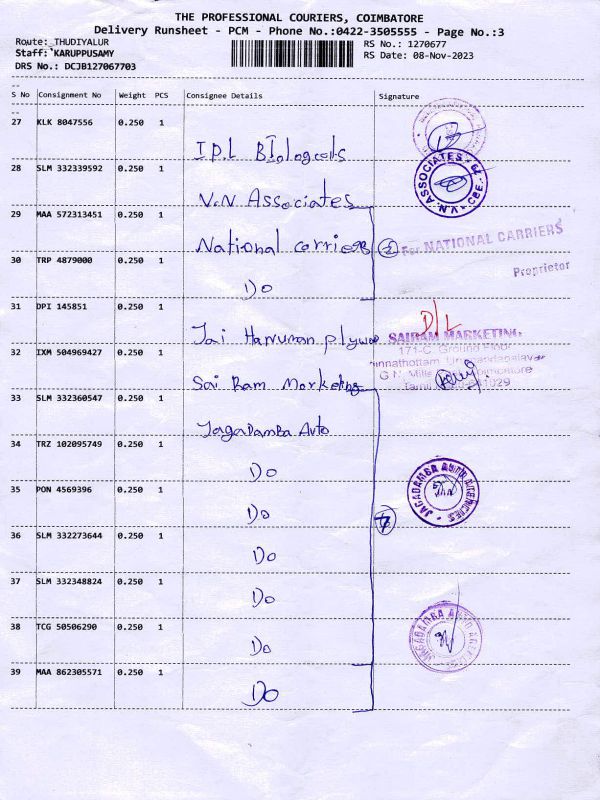 THE PROFESSIONAL COURIERS, COIMBATORE
Delivery Runsheet - PCM - Phone No.:0422-3505555 - Page No.:3
Route: THUDIYALUR
RS No.: 1270677
Staff: KARUPPUSAMY
RS Date: 08-Nov-2023
DRS No.: DCJB127067703
S No Consignment No Weight PCS Consignee Details Signature
27 KLK 8047556 0.250 1
I.P.L Biologcals
28 SLM 332339592 0.250 1
V.N Associates
V.N. ASSOCIATES CBE
29 MAA 572313451 0.250 1
National carriers 2 For NATIONAL CARRIERS
Proprietor
30 TRP 4879000 0.250 1
Do
31 DPI 145851 0.250 1
D/L
Jai Hanuman plywood
SAIRAM MARKETING
171-C, Ground Floor
32 IXM 504969427 0.250 1
Sai Ram Marketing
G.N. Mills Coimbatore
641029
33 SLM 332360547 0.250 1
Jagadamba Auto
34 TRZ 102095749 0.250 1
Do
JAGADAMBA AUTO AGENCIES
35 PON 4569396 0.250 1
Do
7
36 SLM 332273644 0.250 1
Do
37 SLM 332348824 0.250 1
Do
38 TCG 50506290 0.250 1
Do
JAGADAMBA AUTO AGENCIES
39 MAA 862305571 0.250 1
Do